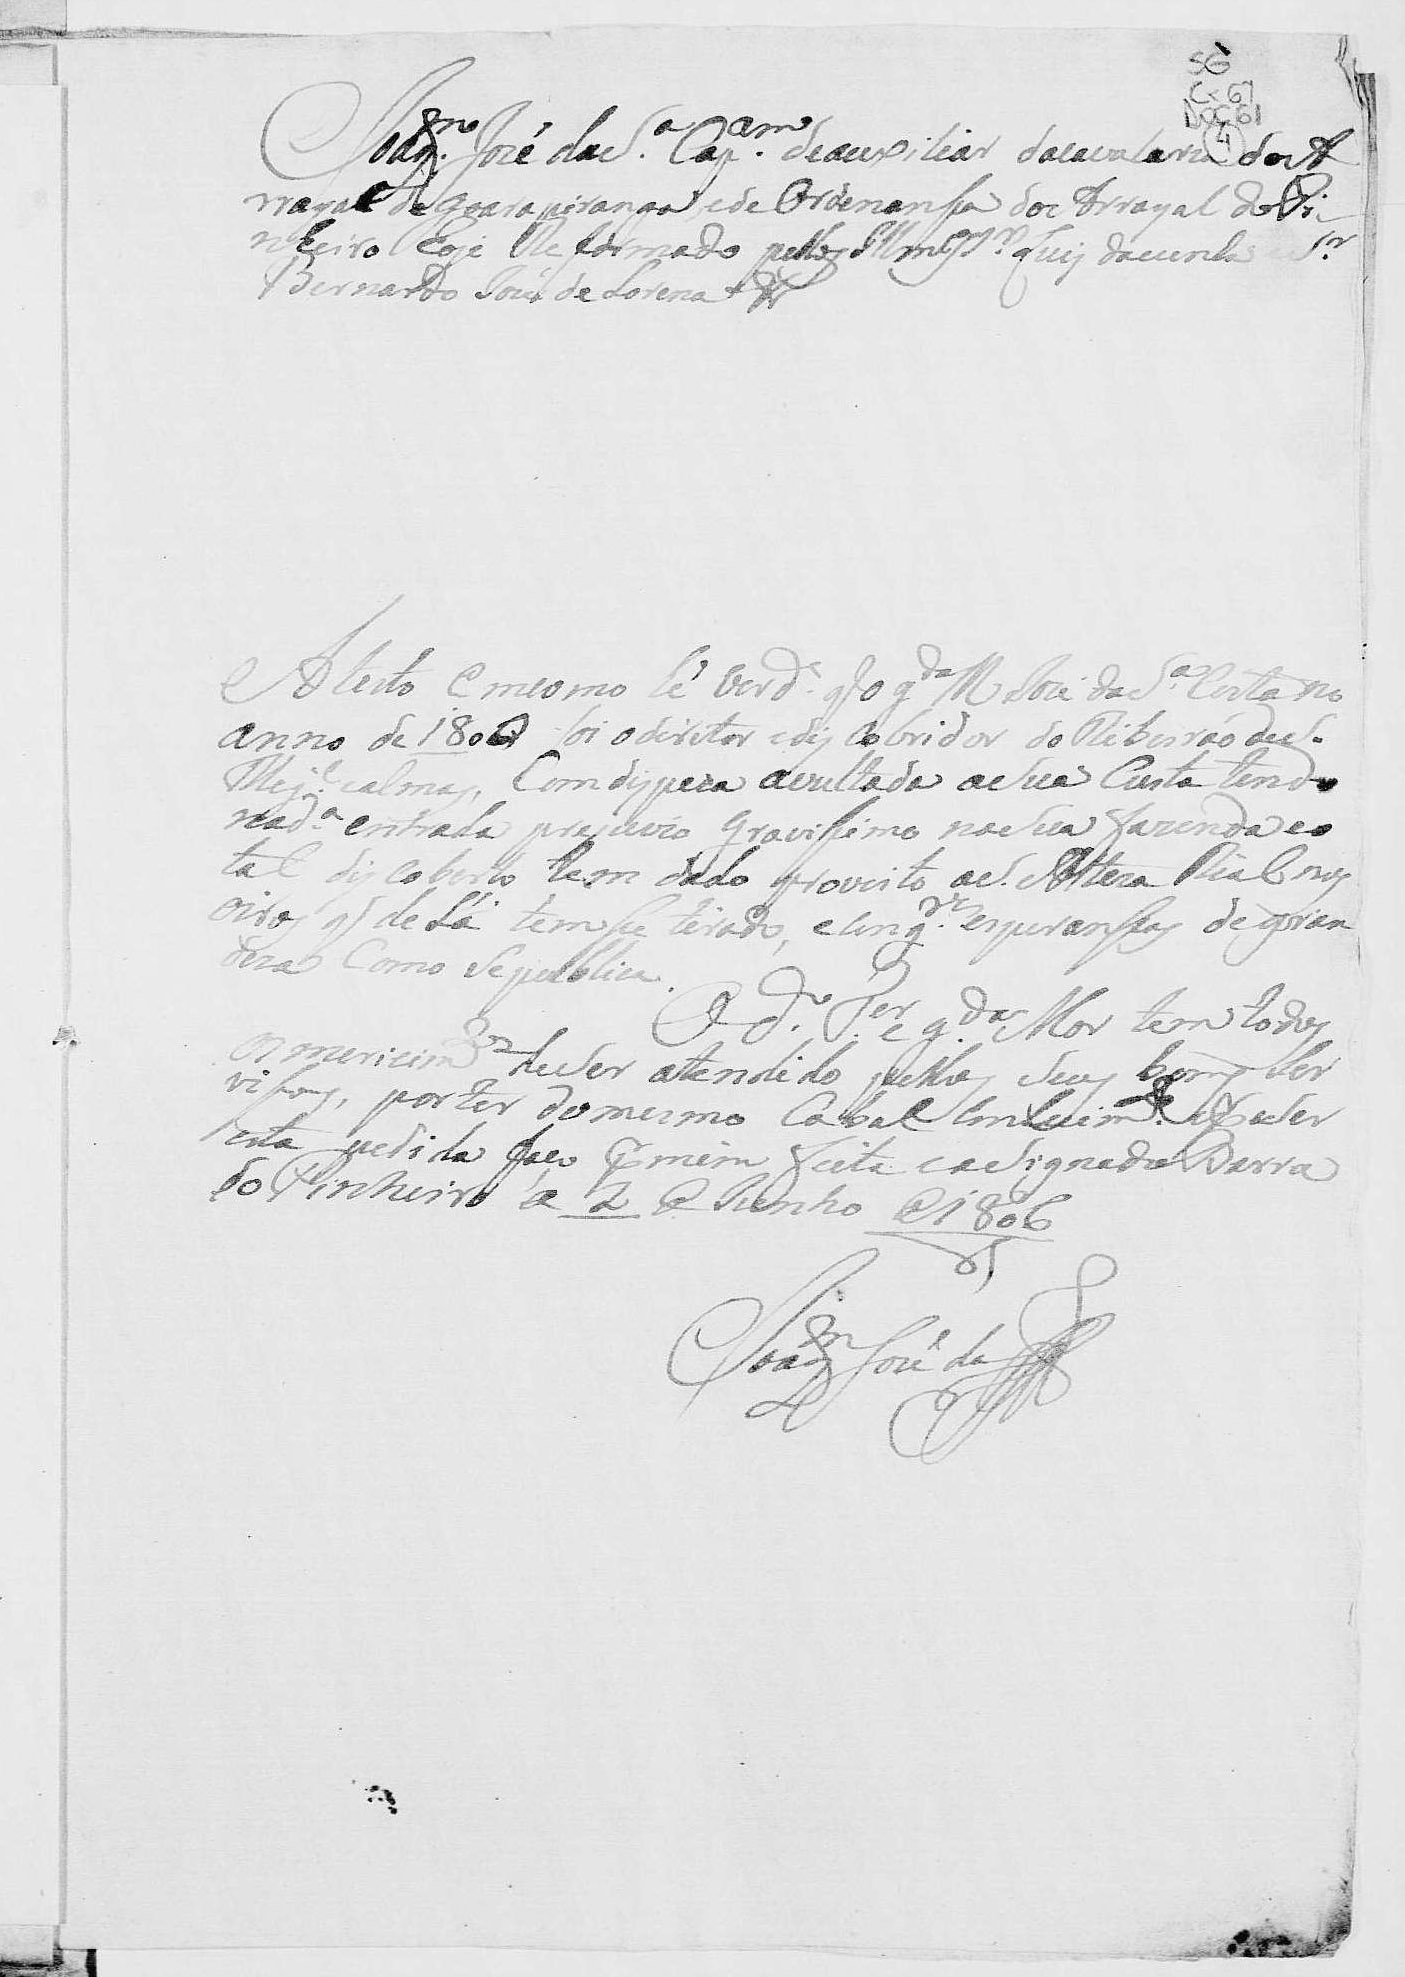 SG
Cx 67
Doc 61
4
Joaq.m José da S.a Cap.am de auxiliar da cavalaria do A
rrayal de goarapiranga, e de Ordenansa do Arrayal do Pi
nheiro hoje Reformado pellos Ill.mos Sr.s Luis da cunha e S.r
Bernardo José de Lorena &
Atesto e mesmo hé verd.e q o g.da M José da S.a Costa no
anno de 1806 foi o diretor e discobridor do Ribeirão de S.
Mig.l e almas, Com dispeza avultada a sua Custa tendo
nad.a entrada prejuizo gravissimo na sua fazenda e o
tal discoberto tem dado proveito a S. Alteza Rial nos
oiros q de Lá tem se tirado, e inq.to esperansas de gran
deza Como se publica.
O d.o e g.da Mor tem todos
os mericim.tos de ser atendido pellos seus bons ser
visos, por ter do mesmo Cabal conhecim.to e p.a ser
esta pedida faço q mim feita e asignada Barra
do Pinheiro a 2 de Junho de 1806
Joaq.m José da S.a